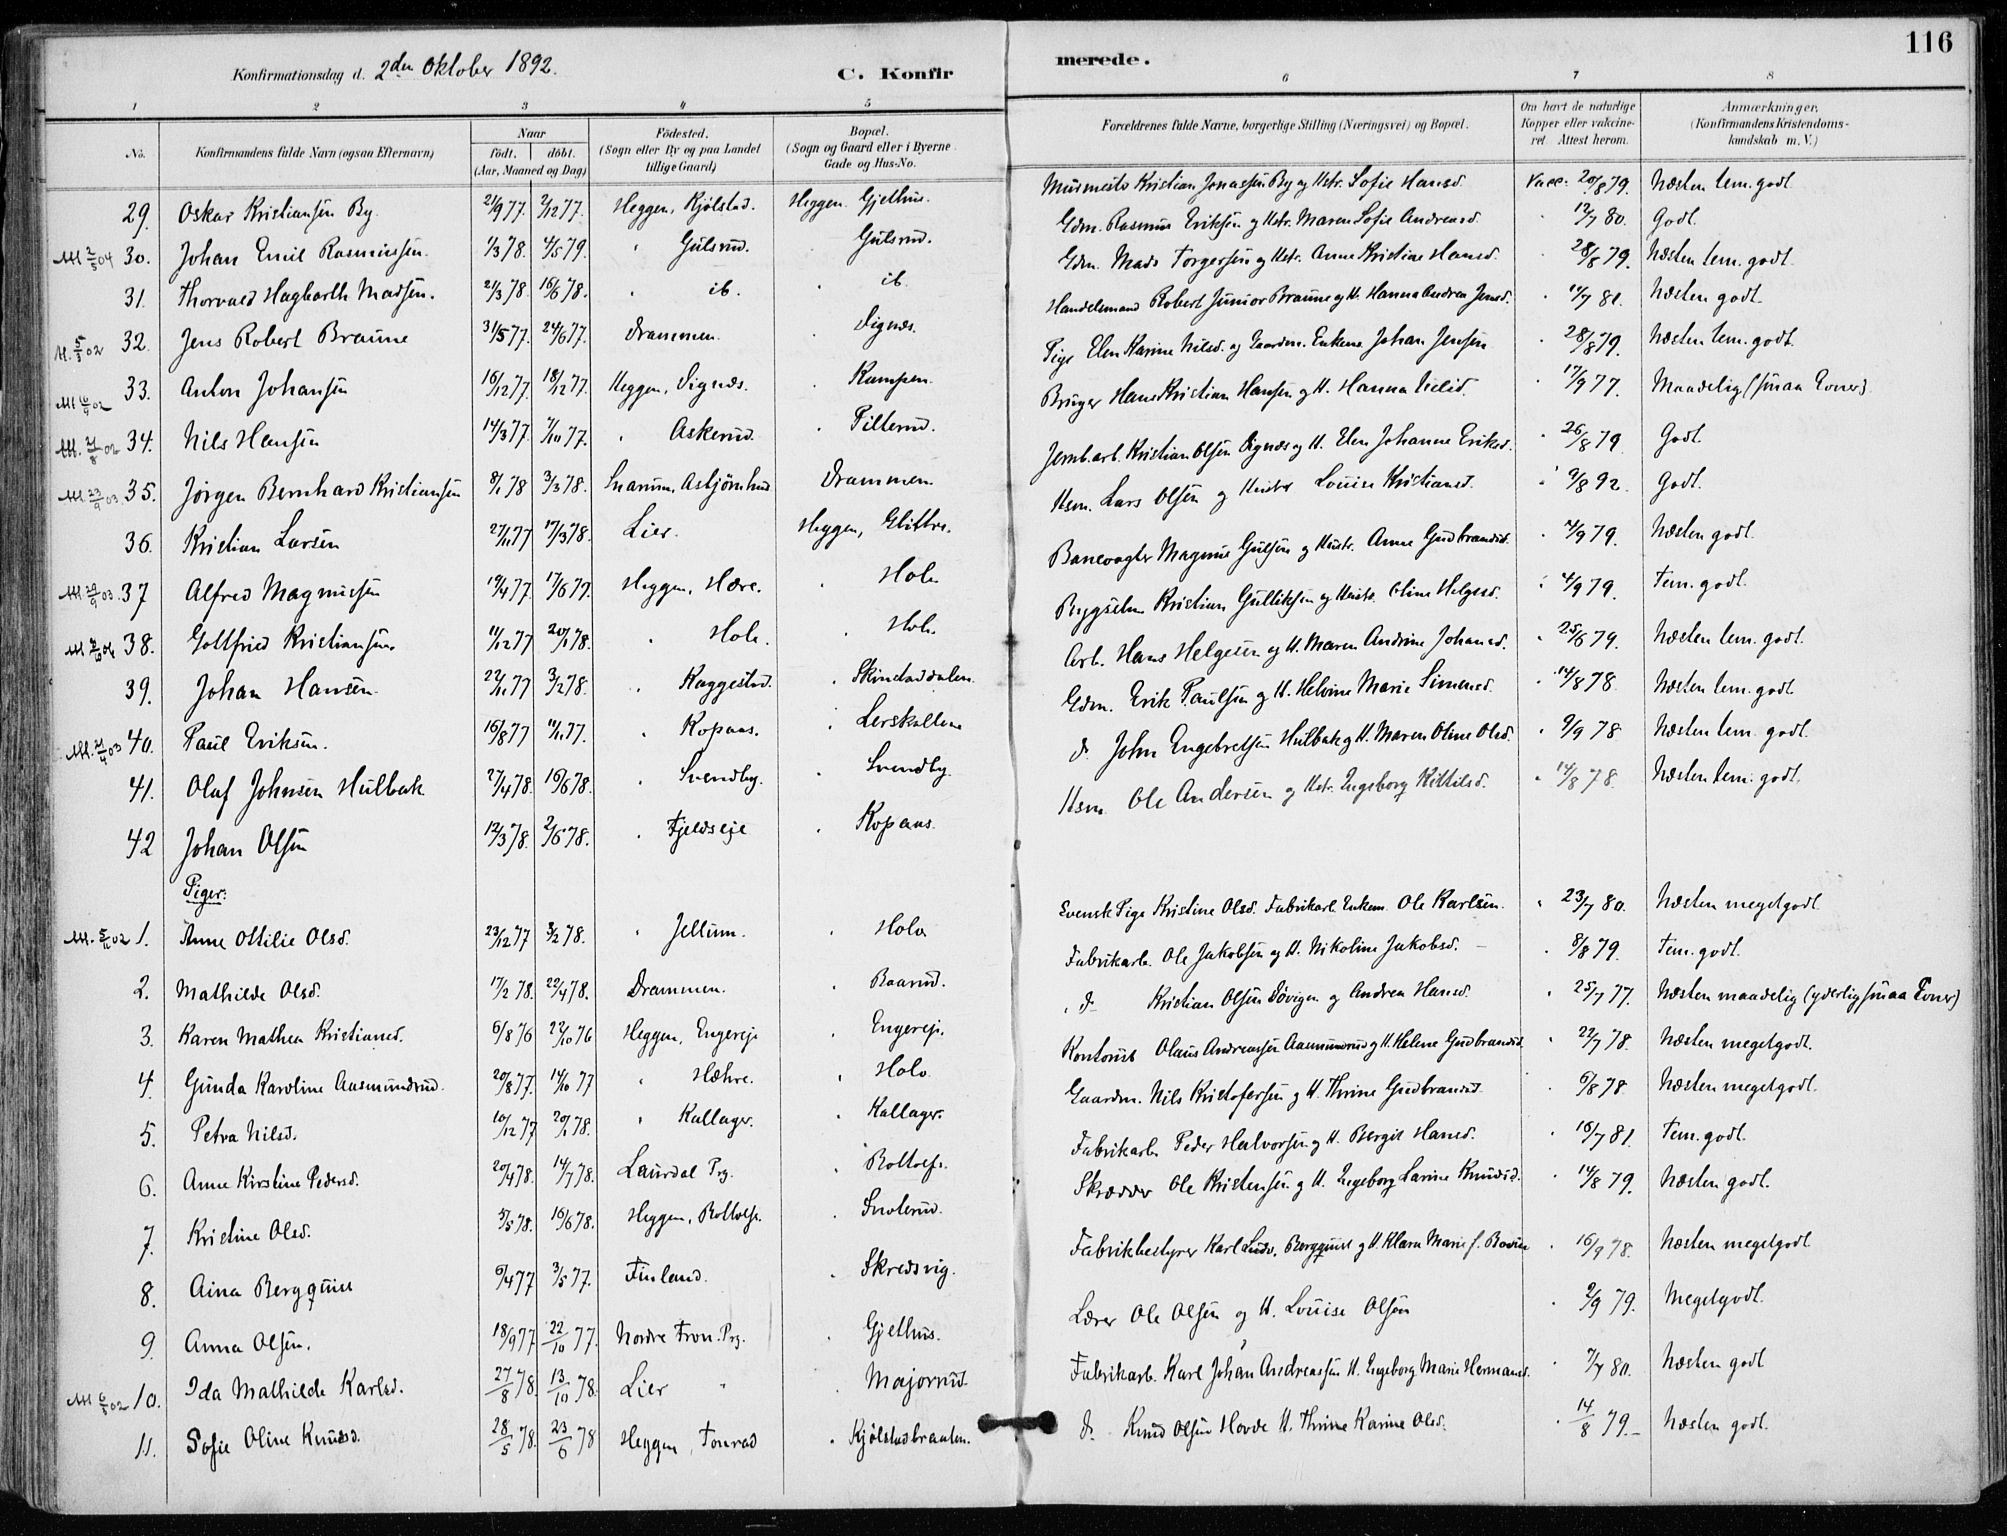 116
Konfirmationsdag d. 2den Oktober 1892.
C. Konfirmerede.
1 2 3 4 5 6 7 8
No. Konfirmandens fulde Navn (ogsaa Efternavn) Naar födt. döbt. (Aar, Maaned og Dag) Födested. (Sogn eller By og paa Landet tillige Gaard) Bopæl. (Sogn og Gaard eller i Byerne Gade og Hus-No. Forældrenes fulde Navne, borgerlige Stilling (Næringsvei) og Bopæl. Om havt de naturlige Kopper eller vakcineret. Attest herom. Anmærkninger. (Konfirmandens Kristendomskundskab m. V.)
29. Oskar Kristiansen By. 21/9 77. 2/12 77. Heggen, Kjølstad. Heggen Gjethus. Murmester Kristian Jonassen By og Hstr. Sofie Hansd. Vacc. 20/8 79. Næsten tem. godt
M 2/5 04 30. Johan Emil Rasmussen. 1/3 78. 4/5 79. " Gulsrud. " Gulsrud. Gdm. Rasmus Eriksen og Hstr. Maren Sofie Andreasd. " 12/7 80. Godt.
31. Thorvald Hagbarth Madsen. 2/3 78. 16/6 78. " ib. " ib. Gdm. Mads Torgersen og Hstr. Anne Kristine Hansd. " 28/8 79. Næsten tem. godt.
M. 5/3 02 32. Jens Robert Braune 31/5 77. 24/6 77. Drammen. " Vignæs. Handelsmand Robert Junior Braune og H. Hanna Andrea Jensd. " 11/7 81. Næsten godt.
33. Anton Johansen 16/12 77. 18/12 77. Heggen, Vignæs. " Kampen. Pige Elen Karine Nilsd. og Gaardm. Enkem. Johan Jensen " 28/8 79. Næsten tem. godt.
M. 21/8 02 34. Nils Hansen 14/3 77. 7/10 77. " Askerud. " Pilterud. Bruger Hans Kristian Hansen og H. Hanna " 17/9 77. Maadelig (smaa Evner).
M. 23/9 03. 35. Jørgen Bernhard Kristiansen 8/1 78 3/3 78. Snarum, Asbjørnhud Drammen Jernb.arb. Kristian Olsen Vignæs og H. Elen Johanne Eriksd. " 26/8 79 Godt
36. Kristian Larsen 27/11 77 17/3 78. Lier. Heggen, Glittre. Hsm. Lars Olsen og Hustr. Louise Kristiansd. " 9/8 92. Godt.
M. 29/9 03. 37 Alfred Magnussen 19/4 77. 17/6 79. Heggen, Hære. " Hole Banevogter Magnus Gulsen og Hustr. Anne Gudbrandsd. " 4/9 79. Næsten godt.
38. Gottfried Kristiansen. 11/12 77 20/1 78. " Hole. " Hole. Bygselm. Kristian Gulliksen og Hustr. Oline Helgesd. " 4/9 79. Tem. godt.
39. Johan Hansen. 22/11 77 3/2 78. " Kaggestad. " Skinstaddalen. Arb. Hans Helgesen og H. Maren Andrine Johansd. " 25/6 79. Næsten tem. godt.
M. 21/4 03 40. Paul Eriksen. 16/8 77 11/11 77. " Kopaas. " Lerskallen Gdm. Erik Paulsen og H. Helvine Marie Simensd. " 14/8 78. Næsten tem. godt
41. Olaf Johnsen Hulbak 27/4 78. 16/6 78. " Svendby. " Svendby. do John Engebretsen Hulbak og H. Maren Oline Olsd. " 9/9 78 Næsten tem. godt.
42 Johan Olsen 12/3 78. 2/6 78. " Fjeldseje " Kopaas. Hsm Ole Andersen og Hstr. Ingeborg Kittilsd. " 14/8 78. Næsten tem. godt.
Piger:
M. 5/11 02 1. Anne Ottilie Olsd. 23/12 77 3/2 78. " Jellum. " Hole Svensk Pige Kristine Olsd. Fabrikarb. Enkem. Ole Karlsen. " 23/7 80. Næsten megetgodt
2. Mathilde Olsd. 17/2 78. 22/4 78. Drammen. " Baarud. Fabrikarb. Ole Jakobsen og H. Nikoline Jakobsd. " 8/8 79. Tem. godt.
3. Karen Mathea Kristiansd. 6/8 76 22/10 76 Heggen, Engereje " Engerej. do Kristian Olsen Døvigen og Andrea Hansd. " 25/7 77. Næsten maadelig (yderlig smaa Evner)
4. Gunda Karoline Aasmundrud. 20/8 77. 14/10 77 " Hæhre. " Hole Kontorist Olaus Andreassen Aasmundrud og H. Helene Gudbrandsd. " 22/7 78. Næsten megetgodt.
5. Petra Nilsd. 10/12 77 20/1 78. " Kallager. " Kallager. Gaardm. Nils Kristofersen og H. Thrine Gudbrandsd. " 6/8 78. Næsten megetgodt.
6. Anne Kirstine Pedersd. 20/4 78. 14/7 78. Laurdal Prg. " Boltoefs. Fabrikarb. Peder Halvorsen og H. Bergit Hansd. " 16/7 81. Tem. godt.
7. Kristine Olsd. 5/5 78. 16/6 78. Heggen, Boltoefs. " Snoterud. Skrædder Ole Kristensen og H. Ingeborg Larine Knudsd. " 14/8 79. Næsten godt.
8. Aina Bergquist 6/4 77 3/5 77. Finland. " Skredsvig. Fabrikbestyrer Karl Ludv. Bergquist og H. Klara Marie f. " 16/9 78. Næsten megetgodt
9. Anna Olsen. 18/9 77 22/10 77. Nordre Fron. Prg. " Gjethus. Lærer Ole Olsen og H. Louise Olsen " 2/9 79. Megetgodt.
M 6/5 02 10. Ida Mathilde Karlsd. 27/8 78. 13/10 78. Lier " " Majorrud Fabrikarb. Karl Johan Andreassen H. Ingeborg Marie Hermansd. " 7/7 80. Næsten godt
11. Sofie Oline Knudsd. 28/5 78. 23/6 78 Heggen, Fonrad " Kjølstadbraaten. do Knud Olsen Hovde H. Thrine Karine Olsd. " 14/8 79. Næsten godt.